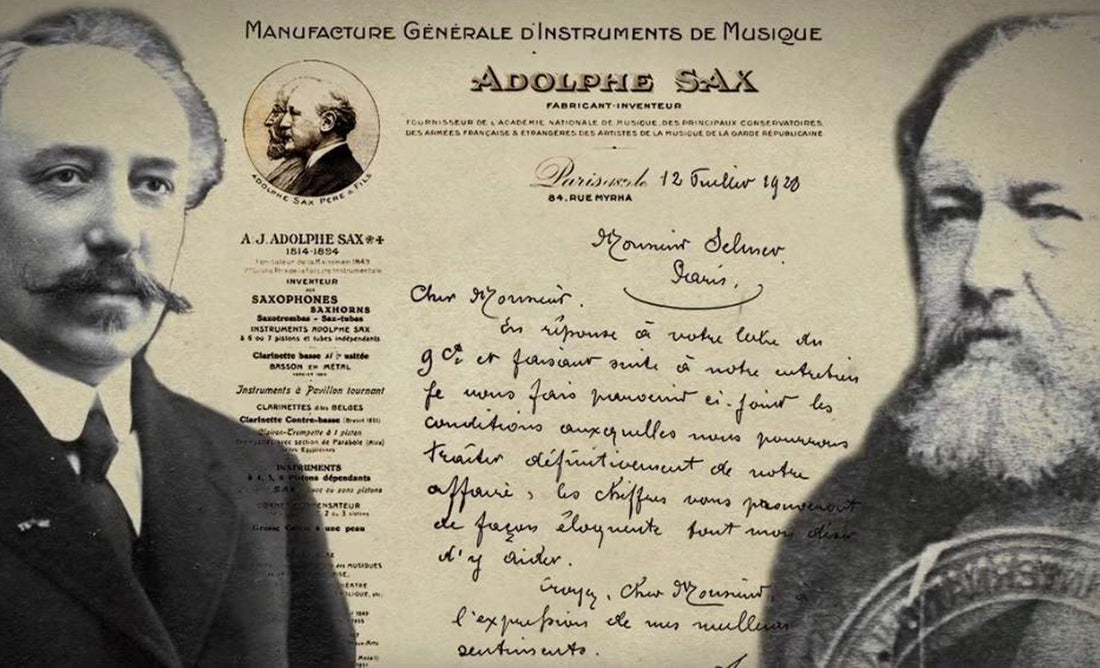 MANUFACTURE GÉNÉRALE D'INSTRUMENTS DE MUSIQUE
ADOLPHE SAX
FABRICANT-INVENTEUR
FOURNISSEUR DE L'ACADÉMIE NATIONALE DE MUSIQUE, DES PRINCIPAUX CONSERVATOIRES,
DES ARMÉES FRANÇAISE & ÉTRANGÈRES DES ARTISTES DE LA MUSIQUE DE LA GARDE RÉPUBLICAINE
ADOLPHE SAX PÈRE & FILS
Paris, le 12 Juillet 1928
84, RUE MYRHA
Monsieur Selmer
Paris.
Cher Monsieur.
En réponse à votre lettre du
9 Ct et faisant suite à notre entretien
Je vous fais parvenir ci-joint les
conditions auxquelles nous pourrons
traiter définitivement de notre
affaire, les chiffres vous prouveront
de façon éloquente tout mon désir
d'y aider.
Croyez, Cher Monsieur, à
l'expression de mes meilleurs
sentiments.
A. J. ADOLPHE SAX
1814-1894
Fondateur de la Maison en 1843
INVENTEUR
DES
SAXOPHONES
SAXHORNS
Saxotrombas - Sax-tubas
INSTRUMENTS ADOLPHE SAX
à 6 ou 7 pistons et tubes indépendants
Clarinette basse si b usitée
BASSON EN MÉTAL
Instruments à Pavillon tournant
CLARINETTES dites BELGES
Clarinette Contre-basse
Clairon-Trompette à 1 piston
avec section de Parabole
INSTRUMENTS
à 4, 5, 6 Pistons dépendants
SAX avec ou sans pistons
CORNET COMPENSATEUR
2 ou 3 pistons
Grosse Caisse à une peau
des MUSIQUES